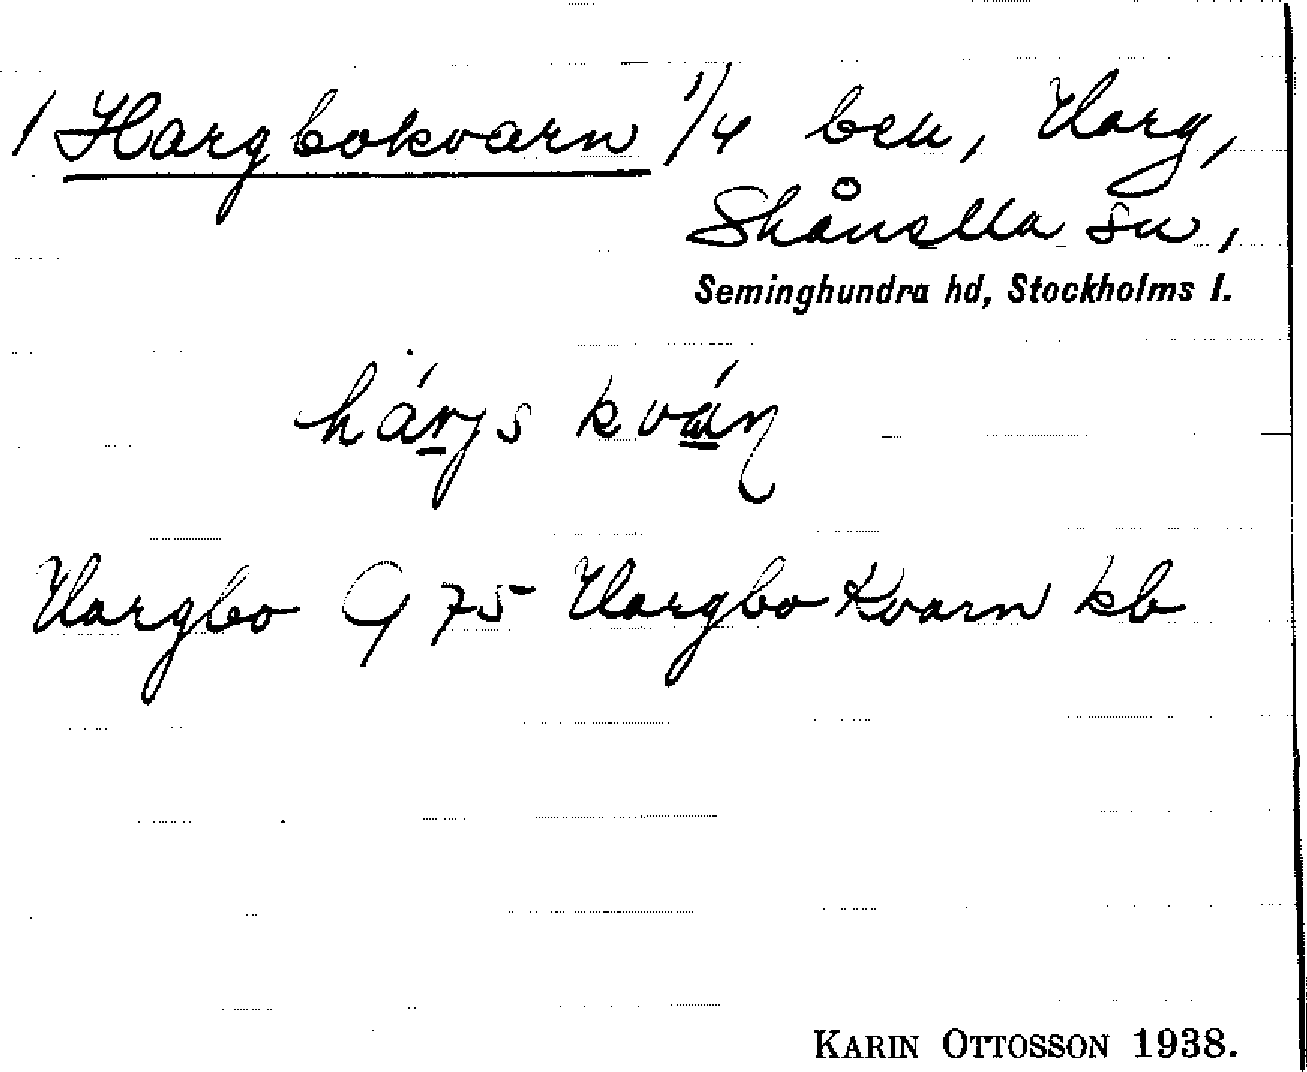 / Hargbokvarn 1/4 ben, Harg,
Skånella sn,
Seminghundra hd, Stockholms l.
hárjs kván
Hargbo G 75 Hargbo Kvarn kb
KARIN OTTOSSON 1938.